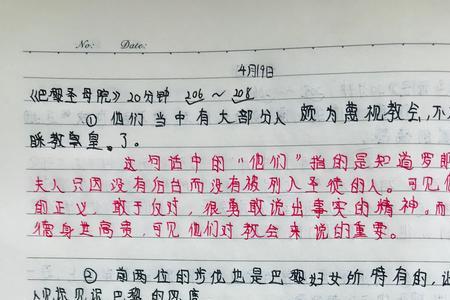 No: Date:
4月19日
《巴黎圣母院》20分钟 206 ~ 208
① 他们当中有大部分人 颇为蔑视教会,不
睬教皇。了。
这句话中的“他们”指的是知道罗
夫人只因没有后台而没有被列入圣徒的人。可见他
的正义,敢于反对,很勇敢说出事实的精神。而
德身其高贵,可见他们对教会来说的重要。
② 前两位的步伐也是巴黎妇女所特有的,
巴黎的风度